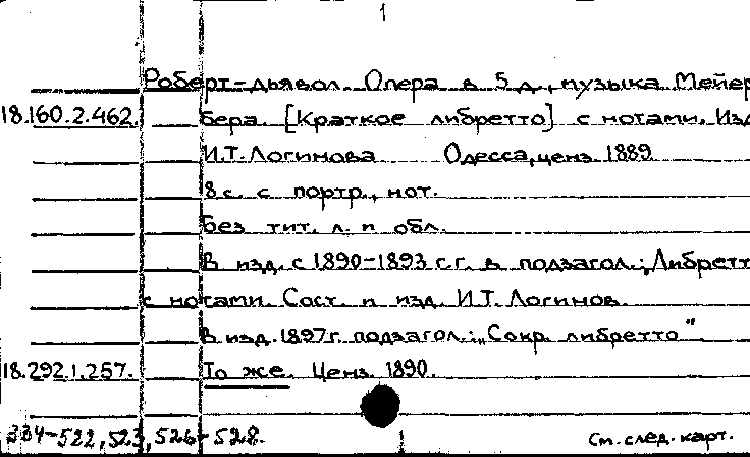 1
Роберт-дьявол. Опера в 5 д., музыка Мейер
18.160.2.462. бера. [Краткое либретто] с нотами. Изд
И.Т. Логинова Одесса, ценз. 1889
8 с. с портр., нот.
Без тит. л. и обл.
В изд. с 1890-1893 г.г. в подзагол.: „Либретт
с нотами. Сост. и изд. И.Т. Логинов.
В изд. 1897 г. подзагол.: „Сокр. либретто"
18.292.1.257. То же. Ценз. 1890.
334-522, 523, 526-528. См. след. карт.